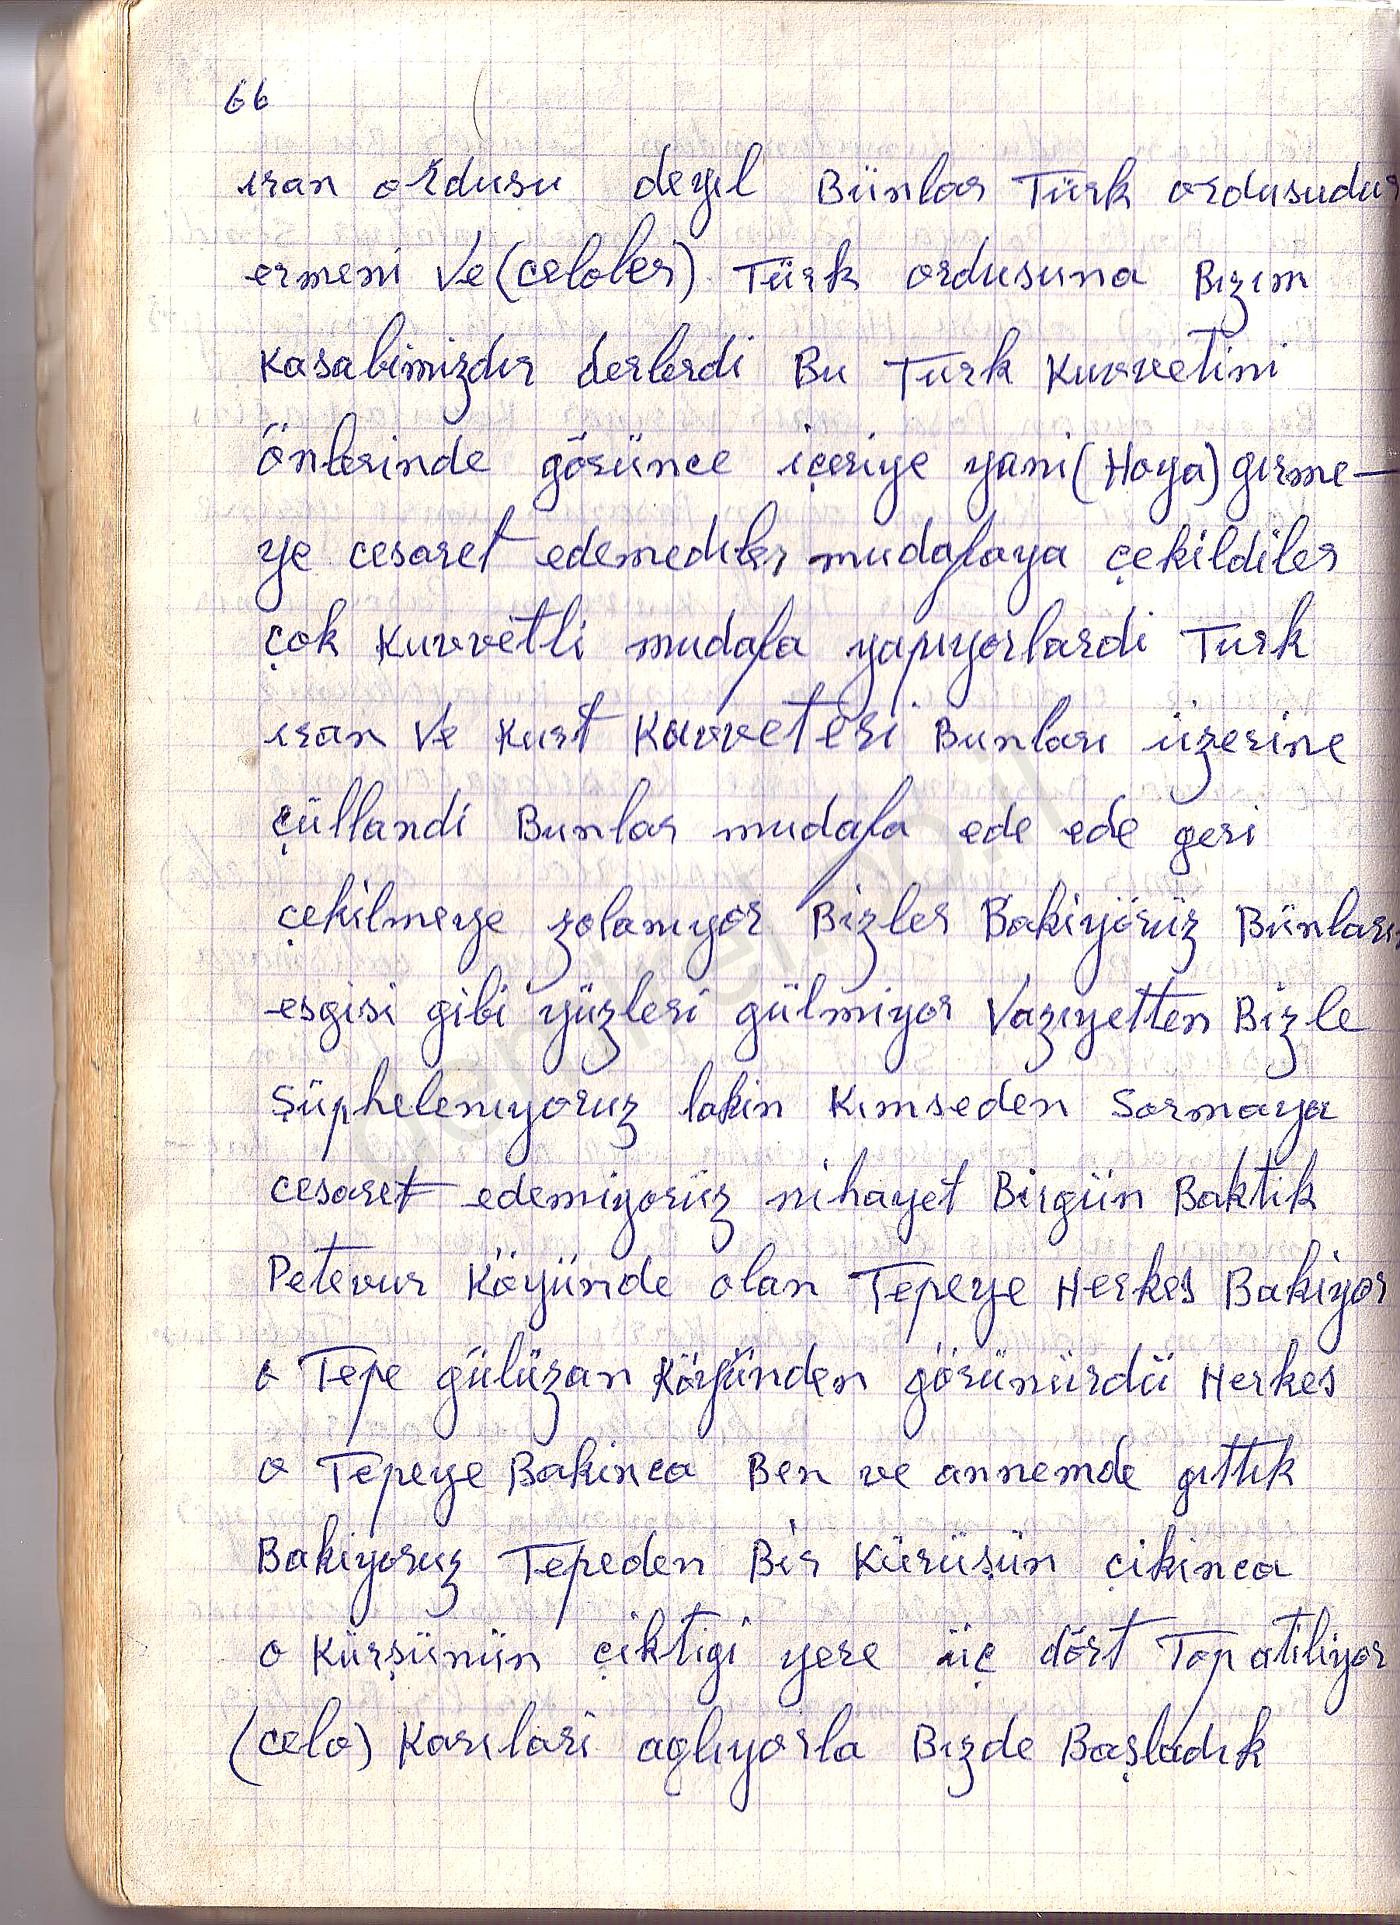 66
ıran ordusu deyıl Bünlar Türk ordusudur
ermeni Ve (celoler) Türk ordusuna Bızım
Kasabimizdır derlerdi Bu Turk Kuvvetini
önlerinde görünce içeriye yani (Hoya) gırme-
ye cesaret edemedıler mudafaya çekildiler
çok Kuvvetli mudafa yapıyorlardi Turk
ıran Ve Kurt Kuvveteri Bunları üzerine
çüllandi Bunlar mudafa ede ede geri
çekilmeye zolanıyor Bizler Bakiyörüz Bünları
esgisi gibi yüzleri gülmiyor Vazıyetten Bizle
Şüphelenıyoruz lakin Kımseden Sormaya
cesaret edemiyorüz nihayet Birgün Baktik
Petevur Köyünde olan Tepeye Herkes Bakiyor
o Tepe gülüzan Köyünden görünürdü Herkes
o Tepeye Bakinca Ben ve annemde gıttık
Bakiyoruz Tepeden Bir Kürüşün çikinca
o Kürşünün çiktigi yere üç dört Top atiliyor
(celo) Karıları aglıyorla Bızde Başladık
demirelbo.il